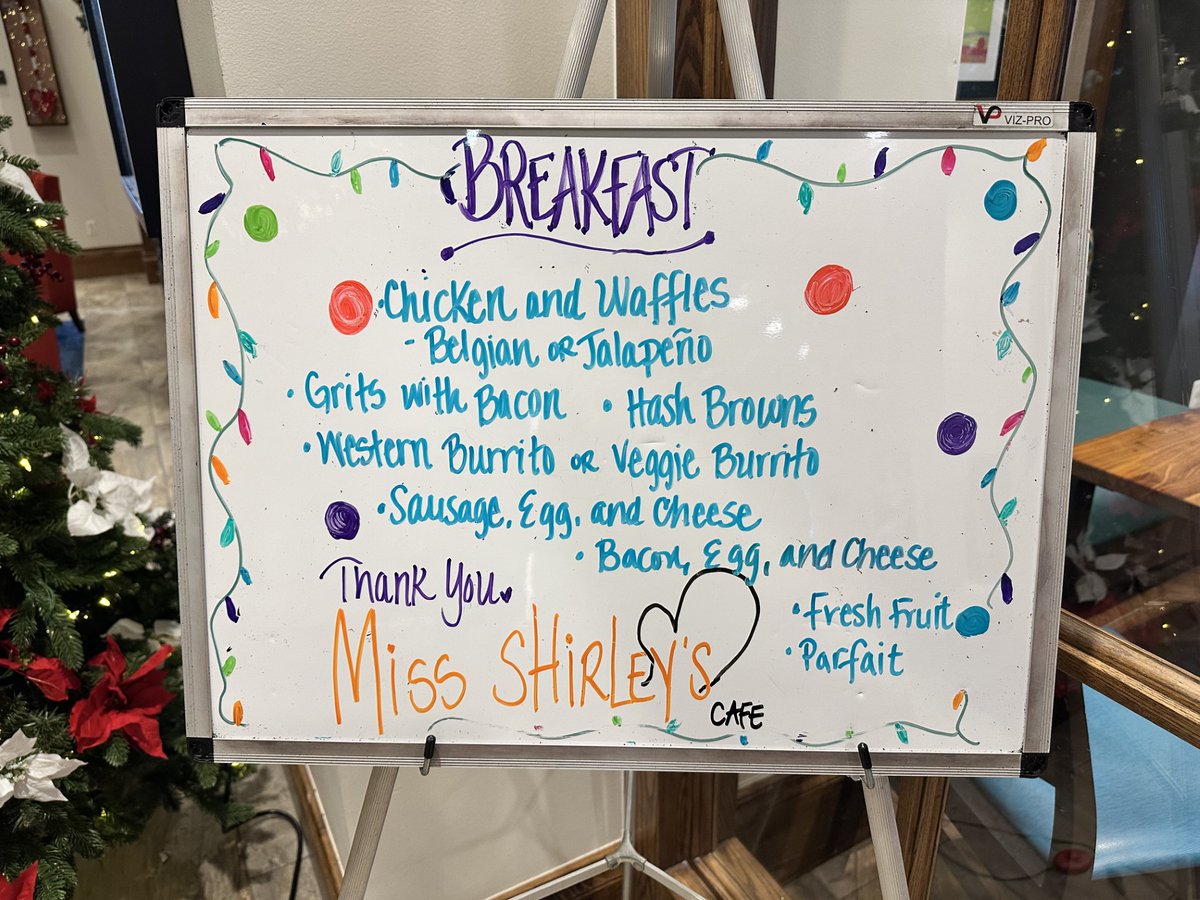 VP VIZ-PRO
BREAKFAST
• Chicken and Waffles
- Belgian or Jalapeño
• Grits with Bacon • Hash Browns
• Western Burrito or Veggie Burrito
• Sausage, Egg, and Cheese
• Bacon, Egg, and Cheese
Thank You
• Fresh Fruit
• Parfait
Miss SHiRLEY'S
CAFE